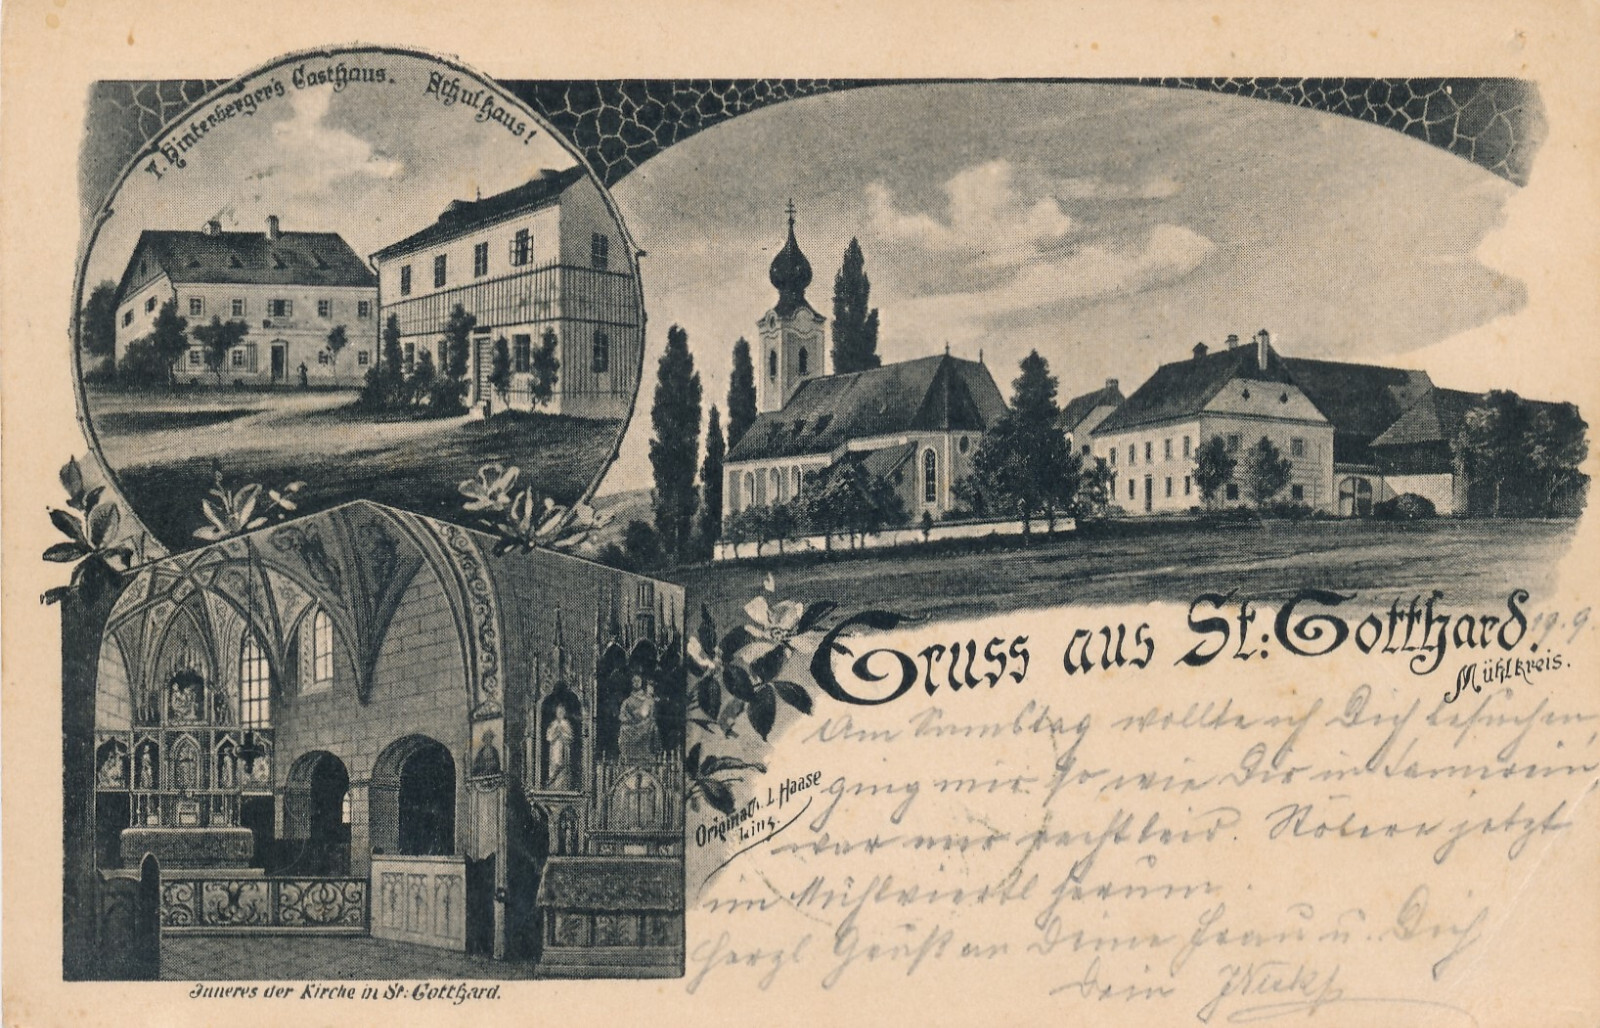 T. Hinterberger's Gasthaus.
Schulhaus!
Gruss aus St: Gotthard.
19.9.
Mühlkreis.
Am Samstag wollte ich Dich besuchen,
ging mir so wie Dir in
war mir recht leid. Stöbere jetzt
im Mühlviertl herum.
Herzl Gruß an Deine Frau u. Dich
Dein
Original v. L Haase
Linz.
Inneres der Kirche in St: Gotthard.